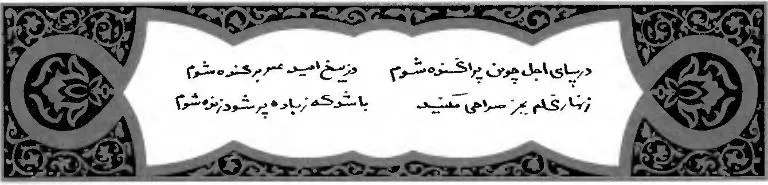 در پای اجل چون پراکنده شوم وز بیخ امید عمر برکنده شوم
زنهار گلم بجز صراحی مکنید باشد که ز باده پر شود زنده شوم